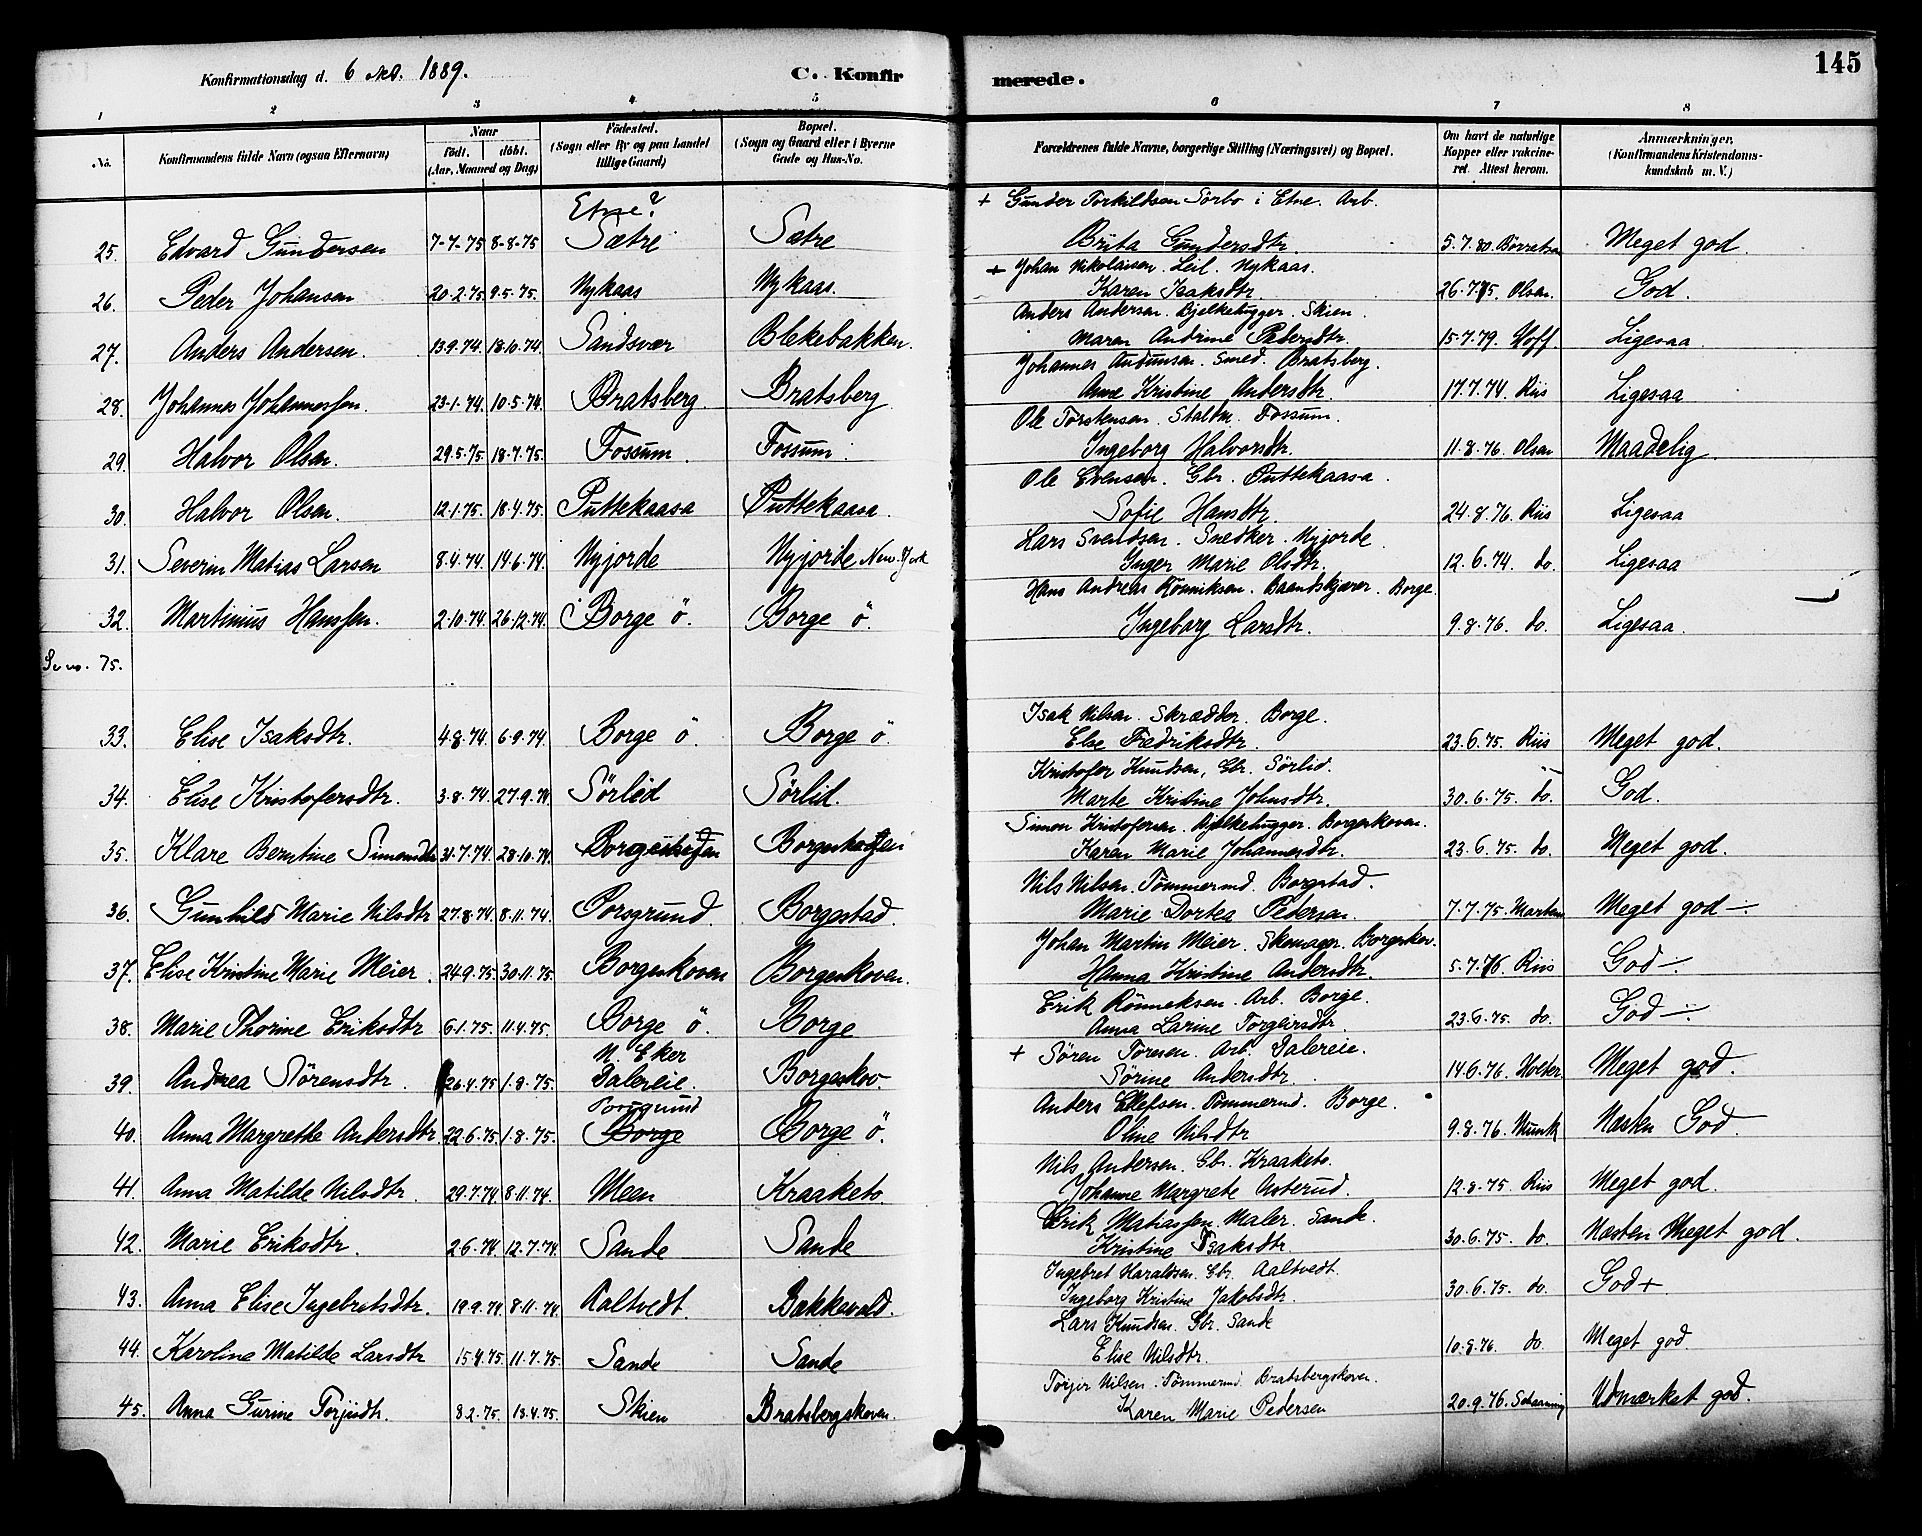 145
Konfirmationsdag d. 6 Okt. 1889. C. Konfirmerede.
1 2 3 4 5 6 7 8
No. Konfirmandens fulde Navn (ogsaa Efternavn) Naar födt. döbt. (Aar, Maaned og Dag) Födested. (Sogn eller By og paa Landet tillige Gaard) Bopæl. (Sogn og Gaard eller i Byerne Gade og Hus-No. Forældrenes fulde Navne, borgerlige Stilling (Næringsvei) og Bopæl. Om havt de naturlige Kopper eller vakcineret. Attest herom. Anmærkninger. (Konfirmandens Kristendomskundskab m. V.)
Etne? + Gunder Torkildsen Sörbo i Etne. Arb.
25. Edvard Gundersen 7-7-75 8-8-75 Sætre Sætre Brita Gundersdtr. 5.7.80. Meget god
+ Johan Nikolaisen. Leil. Nykaas.
26. Peder Johansen 20-2-75 9-5-75. Nykaas Nykaas. Karen Isaksdtr. 26.7.75. Olsen. God.
Anders Andersen. Bjelkehugger. Skien.
27. Anders Andersen. 13.9.74. 18.10.74. Sandsvær Blekebakken. Maren Andrine Pedersdtr. 15.7.79. Hoff. Ligesaa.
Johannes Amundsen. Smed. Bratsberg.
28. Johannes Johannessen. 23.1.74. 10.5.74. Bratsberg. Bratsberg. Anne Kristine Andersdtr. 17.7.74. Riis Ligesaa
Ole Torstensen. Staldm. Fossum.
29. Halvor Olsen. 29.5.75. 18.7.75. Fossum. Fossum. Ingeborg Halvorsdtr. 11.8.76. Olsen Maadelig.
Ole Evensen. Gbr. Puttekaasa.
30. Halvor Olsen. 12.1.75. 18.4.75. Puttekaasa Puttekaasa. Sofie Hansdtr. 24.8.76. Riis Ligesaa
Lars Svendsen. Snedker. Nyjorde.
31. Severin Matias Larsen 8.4.74 14.6.74. Nyjorde Nyjorde New-York Inger Marie Olsdtr. 12.6.74. do. Ligesaa
Hans Andreas Rönniksen. Baandskjærer. Borge.
32. Martinius Hanssen. 2.10.74. 26.12.74. Borge ö. Borge ö. Ingeborg Larsdtr. 9.8.76. do. Ligesaa.
75.
Isak Nilsen. Skrædder. Borge.
33. Elise Isaksdtr. 4.8.74. 6.9.74. Borge ö. Borge ö. Else Fredriksdtr. 23.6.75. Riis Meget god.
Kristofer Knudsen, Gbr. Sörlid.
34. Elise Kristofersdtr. 3.8.74. 27.9.74 Sörlid Sörlid. Marte Kristine Johnsdtr. 30.6.75. do. God.
Simon Kristofersen. Bjelkehugger. Borgeskoven.
35. Klare Berntine Simonsdtr 31.7.74. 28.10.74. Karen Marie Johannesdtr. 23.6.75. do. Meget god.
Nils Nilsen. Tömmermd. Borgestad.
36. Gunhild Marie Nilsdtr 27.8.74. 8.11.74. Porsgrund. Borgestad. Marie Dortea Petersen. 7.7.75. Meget god-.
Johan Martin Meier. Skomager. Borgeskov.
37. Elise Kristine Marie Meier. 24.9.75. 30.11.75. Borgeskoven Borgeskoven. Hanna Kristine Andersdtr. 5.7.76. Riis God-.
Erik Rönneksen. Arb. Borge.
38. Marie Thorine Eriksdtr 6.1.75. 11.4.75. Borge ö. Borge Anna Larine Torgersdtr. 23.6.75. do. God-.
N. Eker + Sören Toresen. Arb. Dalereie.
39. Andrea Sörensdtr. 26.4.75 1.8.75. Dalereie. Borgeskov Sörine Andersdtr. 14.6.76. Meget god.
Porsgrund Anders Ellefsen. Tömmermd. Borge.
40. Anna Margrethe Andersdtr. 22.6.75. 1.8.75. Borge Borge ö. Oline Nilsdtr 9.8.76. Munk Næsten God.
Nils Andersen. Gbr. Kraaketo.
41. Anna Matilde Nilsdtr. 29.7.74 8.11.74. Meen Kraaketo Johanne Margrete Aaterud. 12.8.75. Riis Meget god.
Erik Matiassen. Maler. Sande.
42. Marie Eriksdtr. 2.6.74. 12.7.74. Sande Sande Kristine Isaksdtr. 30.6.75. do. Næsten Meget god.
Ingebret Haraldsen. Gbr. Aaltvedt.
43. Anna Elise Ingebretsdtr. 19.9.74. 8.11.74. Aaltvedt. Bakkevold. Ingeborg Kristine Jakobsdtr. 30.6.75. do. God+
Lars Knudsen. Gbr. Sande
44. Karoline Matilde Larsdtr 15.4.75. 11.7.75. Sande Sande Elise Nilsdtr. 10.8.76. do. Meget god.
Torjer Nilsen. Tömmermd. Bratsbergskoven.
45. Anna Gurine Torjusdtr. 8.2.75. 13.4.75. Skien Bratsbergskoven. Karen Marie Pedersen 20.9.76. Udmærket god.